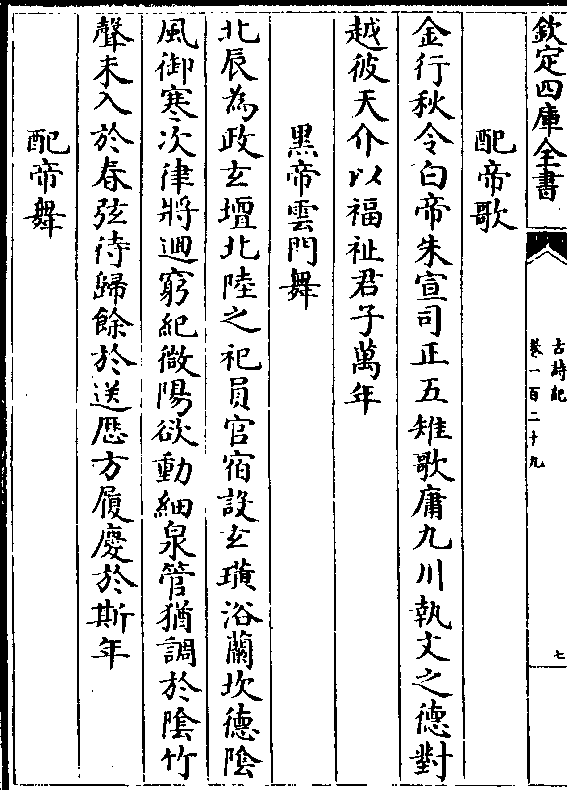 欽定四庫全書
古詩紀
卷一百二十九
七
配帝歌
金行秋令白帝朱宣司正五雉歌庸九川執文之德對
越彼天介以福祉君子萬年
黑帝雲門舞
北辰為政玄壇北陸之祀員官宿設玄璜浴蘭坎德陰
風御寒次律將迴窮紀微陽欲動細泉管猶調於隂竹
聲未入於春弦待歸餘於送歴方履慶於斯年
配帝舞